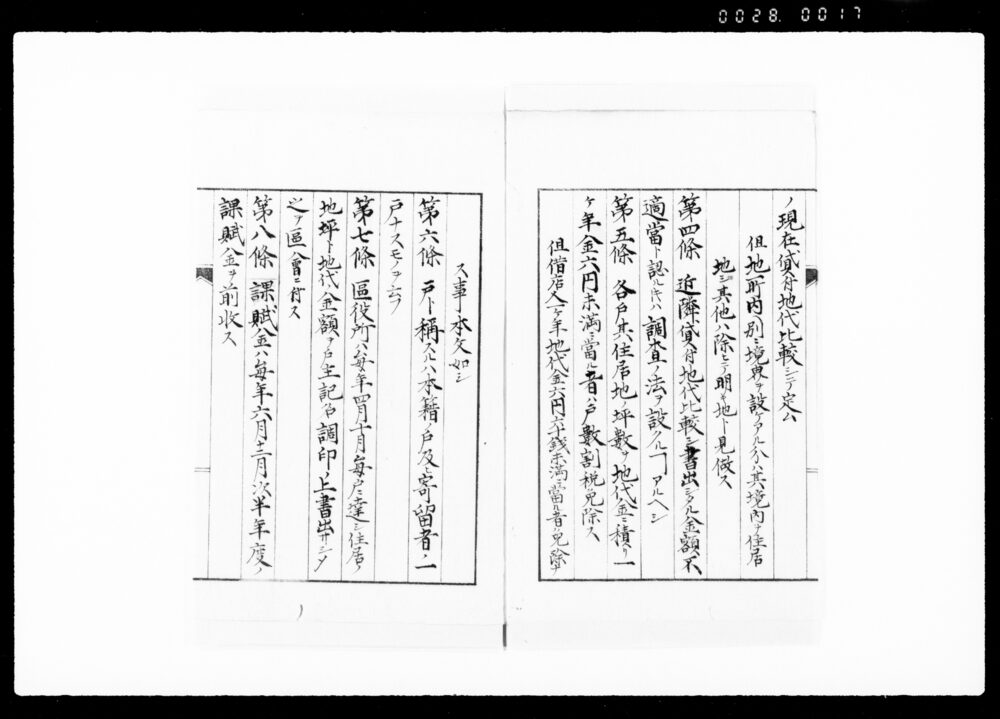 0028.0017
ノ現在貸付地代比較シテ定ム
但地所内ヘ別ニ境界ヲ設ケアル分ハ其境内ヲ住居
地トシ其他ハ除キテ明キ地ト見做ス
第四條 近隣貸付地代比較シ書出シタル金額不
適當ト認ル片ハ調査ノ法ヲ設クルヿアルヘシ
第五條 各戸其住居地ノ坪数ヲ地代金ニ積リ一
ケ年金六円未満ニ當ル者ハ戸數割税免除ス
但借店人一ケ年地代金六円六十銭未満ニ當ル者ハ免除
ス事本文如シ
第六條 戸ト稱スルハ本籍ノ戸及ヒ寄留者ノ一
戸ナスモノヲ云フ
第七條 區役所ハ毎年四月十月毎戸ニ達シ住居ノ
地坪ト地代金額ヲ戸主記名調印ノ上書出サシメ
之ヲ區會ニ付ス
第八條 課賦金ハ毎年六月十二月次半年度ノ
課賦金ヲ前收ス